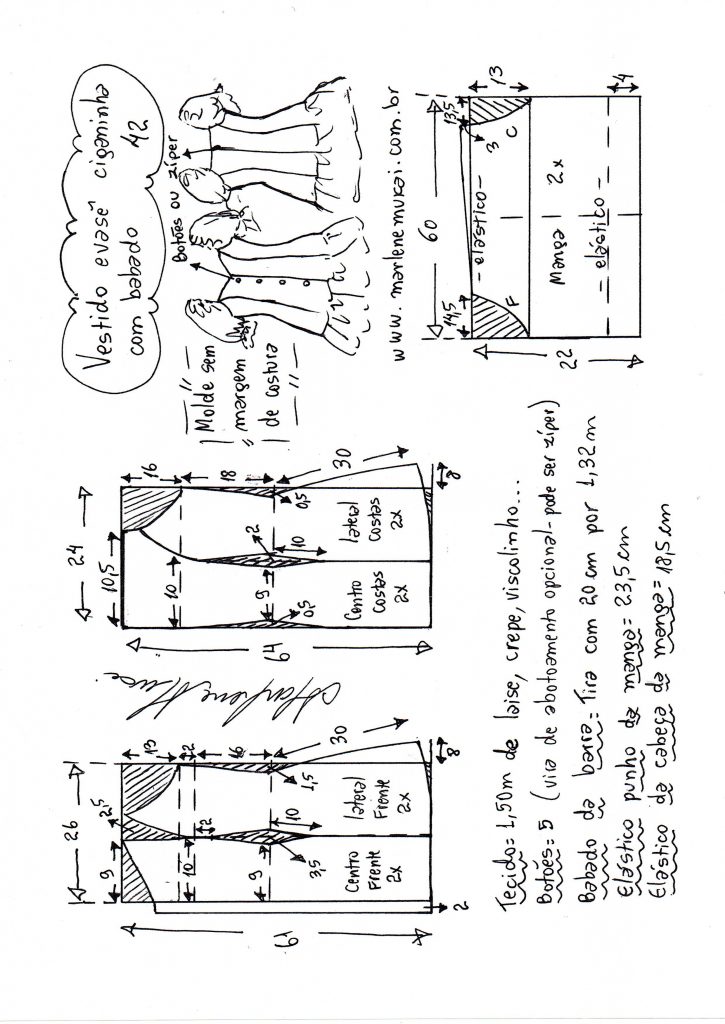 Vestido evasê ciganinha
com babado 42
Botões ou zíper
Molde sem
margem
de costura
www.marlenemukai.com.br
26
9
2,5
13
2
16
30
10
2
9
10
1,5
3,5
61
2
8
Centro
Frente
2x
lateral
Frente
2x
Marlene Mukai
24
10,5
16
18
30
10
9
2
10
0,5
0,5
64
8
Centro
Costas
2x
lateral
Costas
2x
60
14,5
13,5
13
3
C
F
22
4
- elástico -
Manga 2x
= elástico -
Tecido= 1,50m de laise, crepe, viscolinho...
Botões= 5 (vira de abotoamento opcional-pode ser zíper)
Babado da barra= Tira com 20cm por 1,32m
Elástico punho da manga= 23,5cm
Elástico da cabeça da manga= 18,5cm